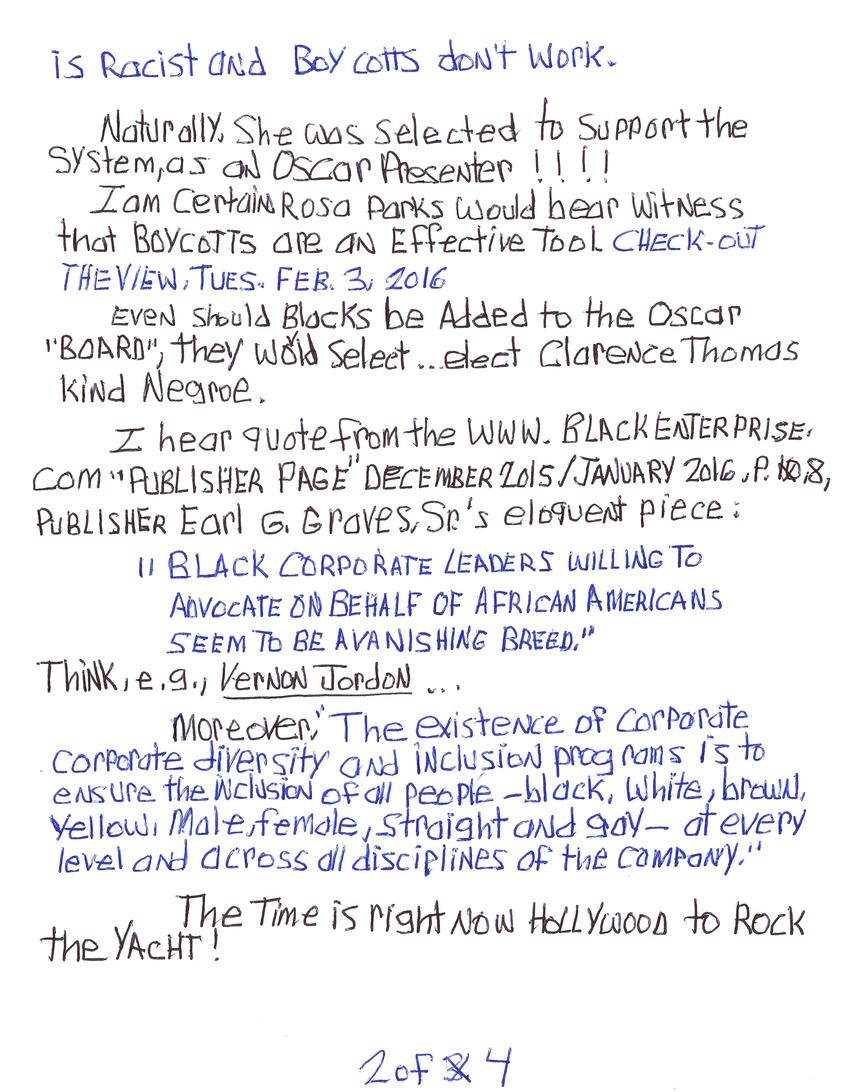 is Racist and Boycotts don't Work.
Naturally, She was Selected to Support the
System, as an Oscar Presenter !!!!
I am Certain Rosa Parks Would bear Witness
that BOYCOTTS are an Effective Tool CHECK-OUT
THE VIEW, TUES. FEB. 3, 2016
Even should Blacks be Added to the Oscar
"BOARD", they would Select...elect Clarence Thomas
Kind Negroe.
I hear quote from the WWW. BLACKENTERPRISE.
COM "PUBLISHER PAGE" DECEMBER 2015/JANUARY 2016, P. 8,
PUBLISHER Earl G. Graves, Sr.'s eloquent piece:
" BLACK CORPORATE LEADERS WILLING TO
ADVOCATE ON BEHALF OF AFRICAN AMERICANS
SEEM TO BE A VANISHING BREED."
Think, e.g., Vernon Jordon ...
Moreover," The existence of Corporate
Corporate diversity and inclusion programs is to
ensure the inclusion of all people -black, White, brown,
Yellow, Male, female, straight and gay- at every
level and across all disciplines of the company."
The Time is right Now HOLLYWOOD to Rock
the YACHT!
2 of 4